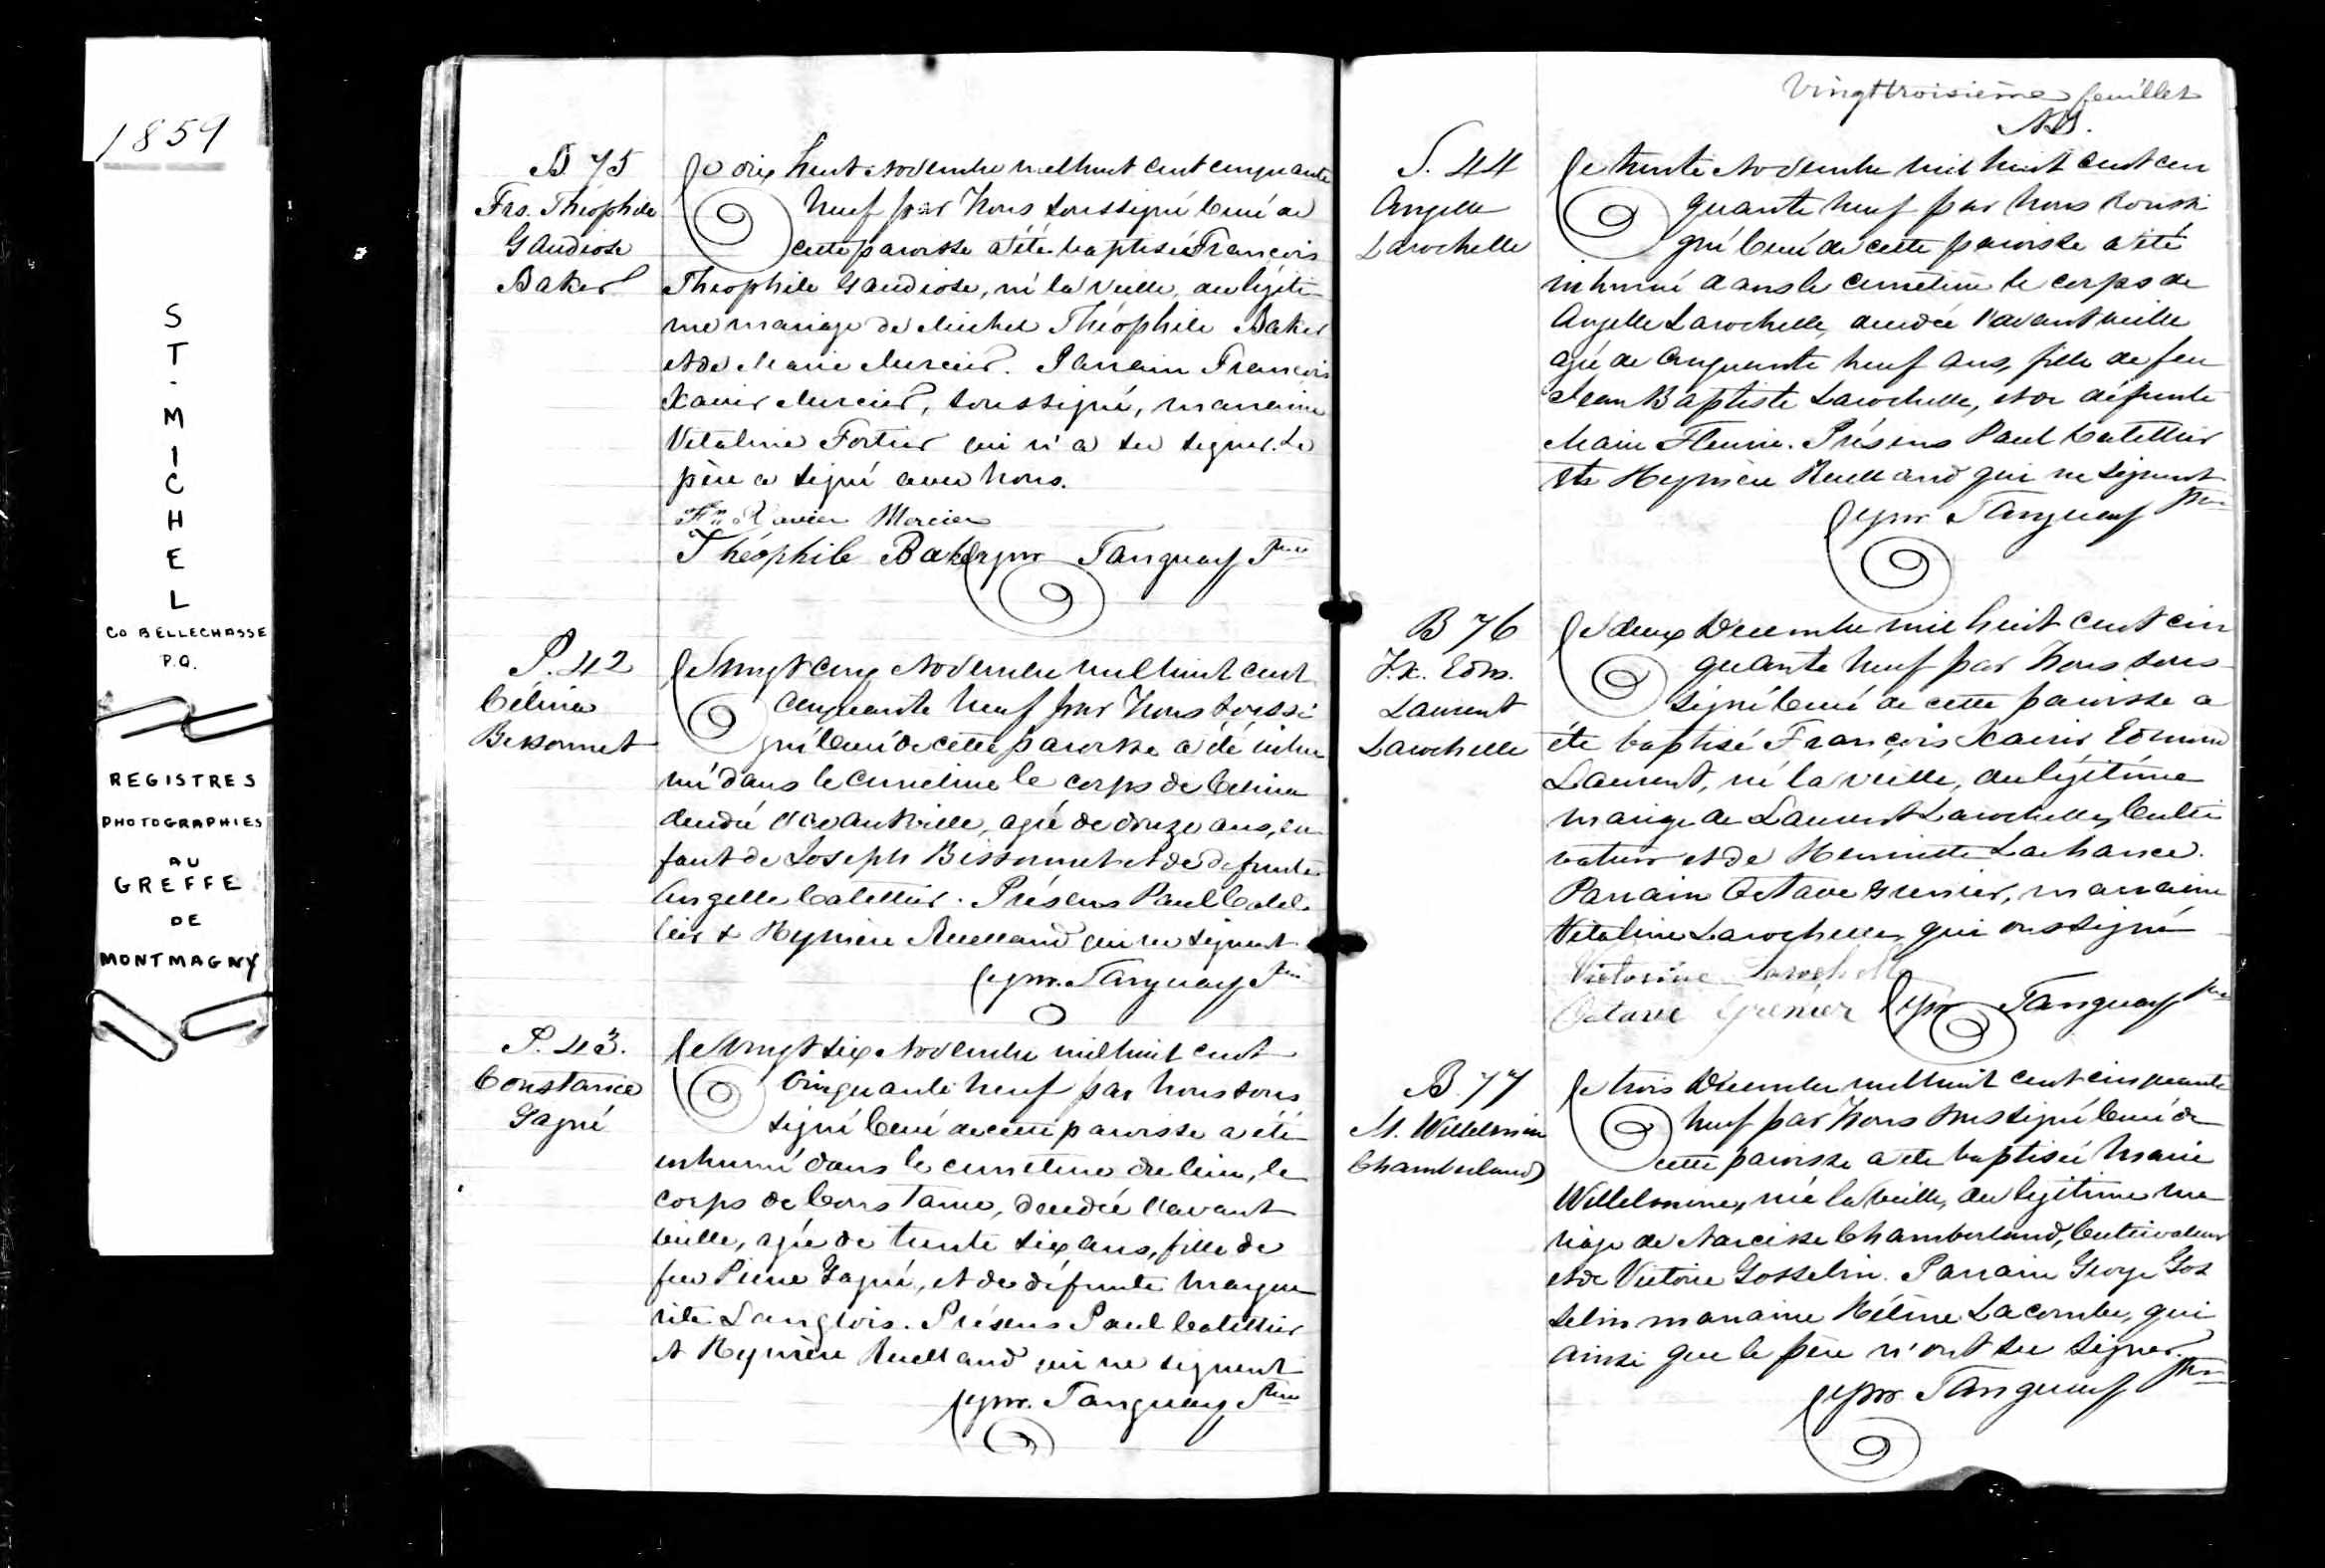 1859
ST. MICHEL
CO BELLECHASSE
P.Q.
REGISTRES
PHOTOGRAPHIES
AU
GREFFE
DE
MONTMAGNY
B 75
Frs. Théophile
Gaudiose
Baker
Le dix huit Novembre mil huit cent cinquante
neuf par Nous soussigné Curé de
cette paroisse a été baptisé François
Théophile Gaudiose, né la veille, du légiti
me mariage de Michel Théophile Baker
et de Marie Mercier. Parrain François
Xavier Mercier, soussigné, marraine
Vitaline Fortier qui n'a su signer. Le
père a signé avec nous.
Frs Xavier Mercier
Théophile Baker Tanguay Ptre
S. 42
Célina
Bissonnet
Le vingt cinq Novembre mil huit cent
cinquante neuf par Nous soussi
gné Curé de cette paroisse a été inhu
mé dans le cimetière le corps de Célina
décédé l'avant veille, agé de douze ans, en
fant de Joseph Bissonnet et de défunte
Angelle Catellier. Présens Paul Catel
lier & Hymère Ruelland qui ne signent
Tanguay Ptre
S. 43.
Constance
Gagné
Le vingt six Novembre mil huit cent
Cinquante neuf par nous sous
signé Curé de cette paroisse a été
inhumé dans le cimetière du lieu, le
corps de Constance, décédée l'avant
veille, agée de trente six ans, fille de
feu Pierre Gagné, et de défunte Margue
rite Langlois. Présens Paul Catellier
et Hymère Ruelland qui ne signent
Tanguay Ptre
Vingttroisième feuillet
S. 44
Angelle
Larochelle
Le trente Novembre mil huit cent cin
quante neuf par nous soussi
gné Curé de cette paroisse a été
inhumé dans le cimetière le corps de
Angelle Larochelle, décédée l'avant veille
agée de cinquante neuf ans, fille de feu
Jean Baptiste Larochelle, et de défunte
Marie Fleurie. Présens Paul Catellier
et Hymère Ruelland qui ne signent
Tanguay Ptre
B 76
F.X. Edm.
Laurent
Larochelle
Le deux Décembre mil huit cent cin
quante neuf par Nous sous
signé Curé de cette paroisse a
été baptisé François Xavier Edmond
Laurent, né la veille, du légitime
mariage de Laurent Larochelle, Culti
vateur et de Henriette Lachance.
Parrain Octave Grenier, marraine
Vitaline Larochelle, qui ont signé
Victorine Larochelle
Octave Grenier Tanguay Ptre
B. 77
M. Willelmine
Chamberland
Le trois Décembre mil huit cent cinquante
neuf par Nous soussigné Curé de
cette paroisse a été baptisée Marie
Willelmine, née la veille, du légitime ma
riage de Narcisse Chamberland, Cultivateur
et de Victoire Gosselin. Parrain George Gos
selin marraine Héline Lacombe, qui
ainsi que le père n'ont su signer.
Tanguay Ptre